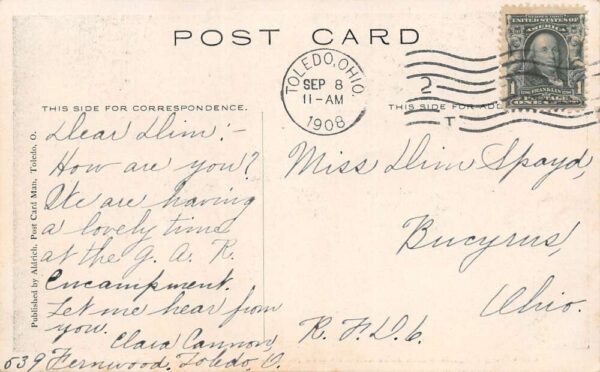 POST CARD
UNITED STATES OF
AMERICA
FRANKLIN
ONE
TOLEDO, OHIO
SEP 8
11-AM
1908
2
T
THIS SIDE FOR CORRESPONDENCE.
THIS SIDE FOR
Published by Aldrich, Post Card Man, Toledo, O.
Dear Dim:-
How are you?
We are having
a lovely time
at the G. A. R.
Encampment.
Let me hear from
you.
Clara Cannon,
639 Fernwood, Toledo, O.
Miss Dim Spayd,
Bucyrus,
Ohio.
R. F. D. 6.